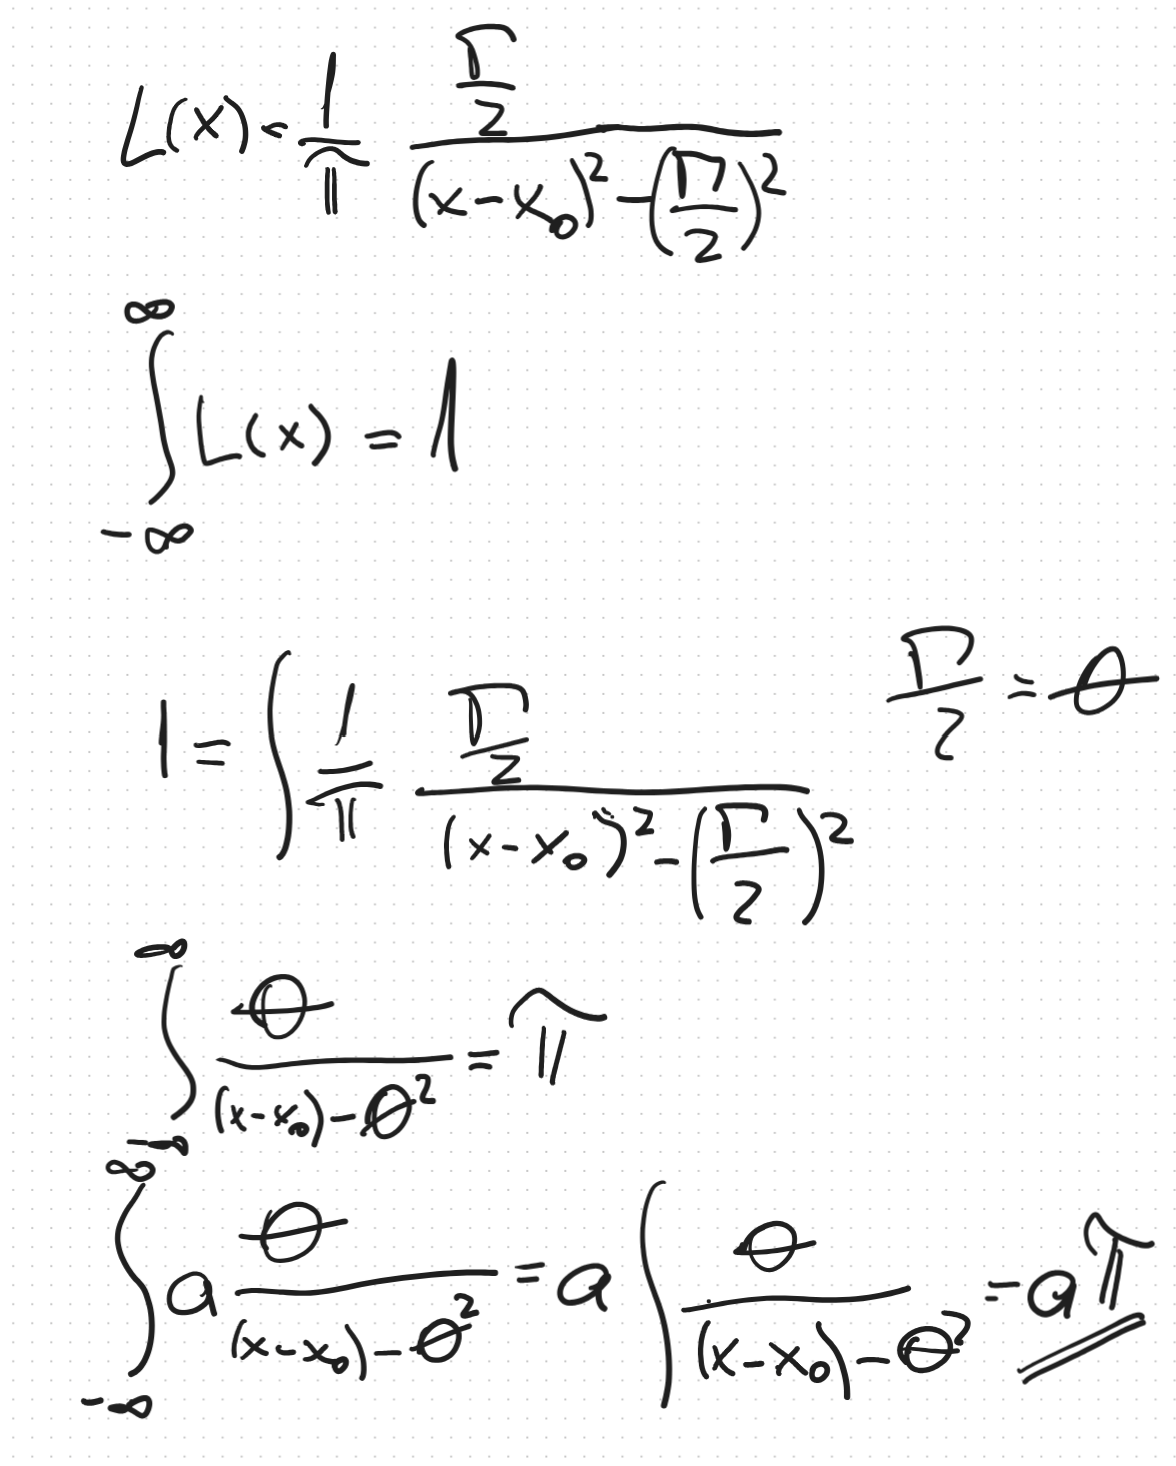 L(x) = 1/π (Γ/2)/((x-x₀)² - (Γ/2)²)
∫_{-∞}^{∞} L(x) = 1
1 = ∫ 1/π (Γ/2)/((x-x₀)² - (Γ/2)²)
Γ/2 = θ
∫_{-∞}^{∞} θ/((x-x₀) - θ²) = π
∫_{-∞}^{∞} a θ/((x-x₀) - θ²) = a ∫ θ/((x-x₀) - θ²) = aπ